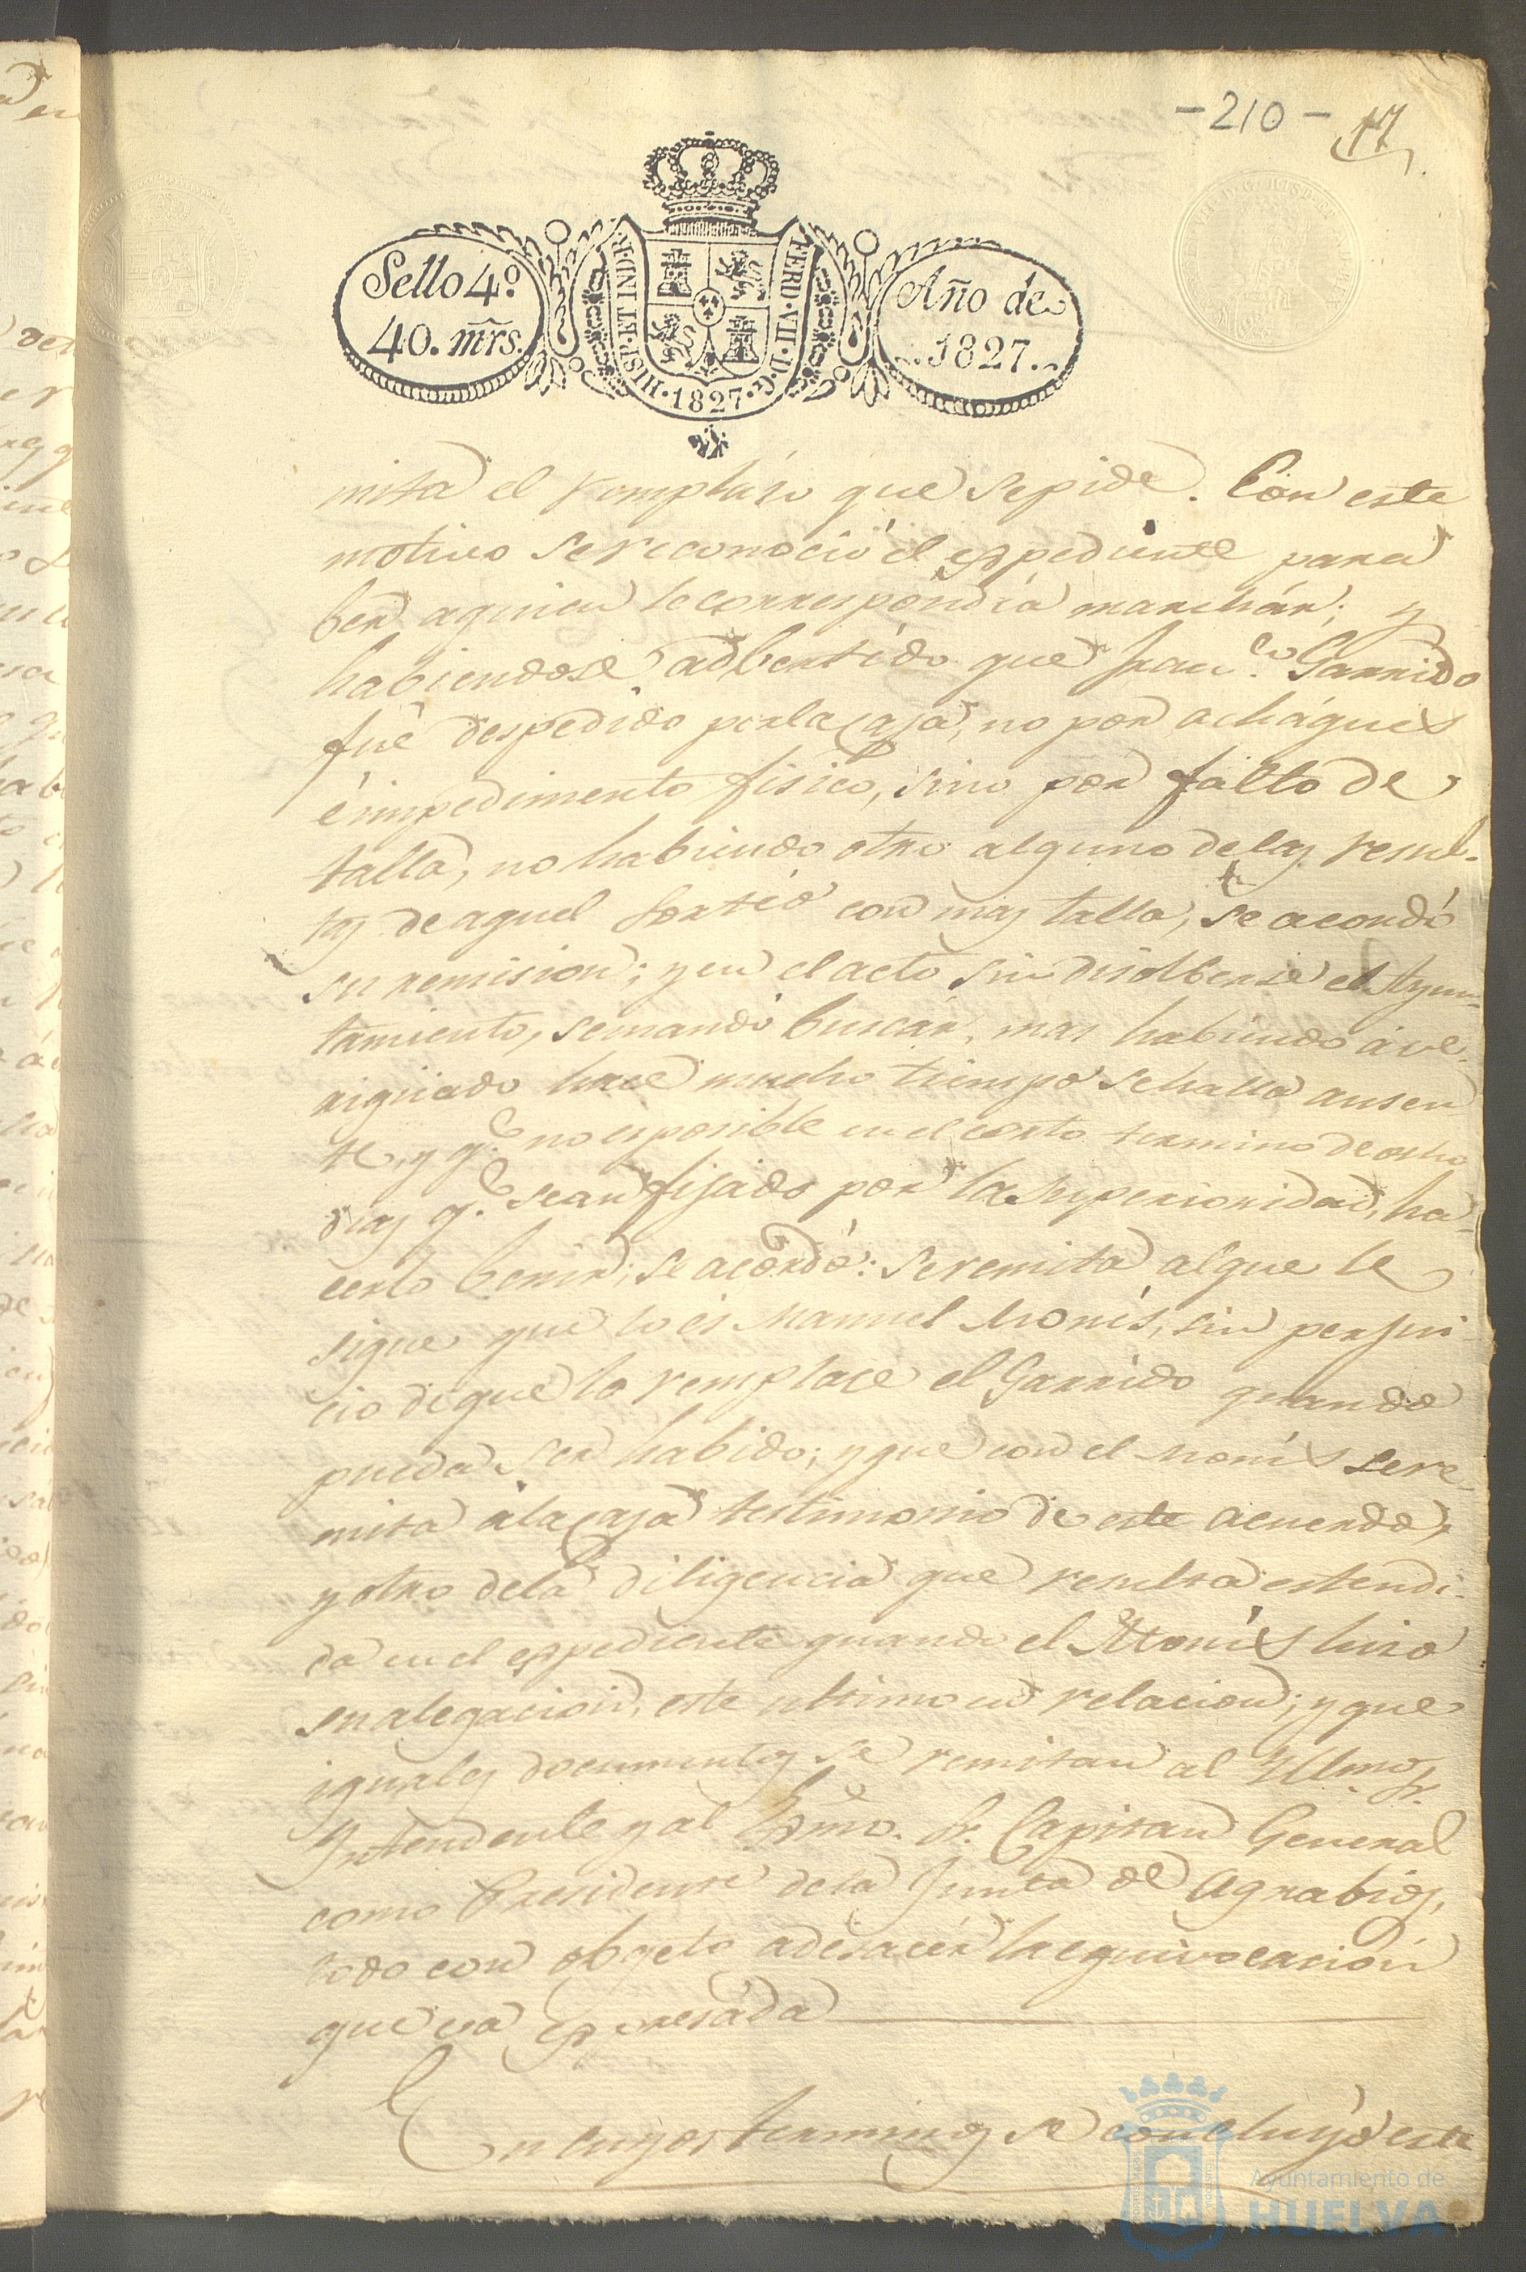 -210- 17
Sello 4º
40. mrs.
HISP. ET IND. R.
FERD. VII. D. G.
1827
Año de
1827.
mita el remplaso que se pide. Con este
motivo se reconoció el espediente para
ber a quien le correspondia marchar; y
habiendose adbertido que Fran.co Garrido
fué despedido por la caja, no por acháques
é impedimento fisico, sino por falto de
talla, no habiendo otro alguno de las resul-
tas de aquel sortéo con mas talla, se acordó
su remision; y en el acto sin disolberse el Ayun-
tamiento, se mandó buscar, mas habiendo ave-
rigüado hace mucho tiempo se halla ausen
te, y q.e no es posible en el corto termino de ocho
dias q.e sean fijado por la Superioridad, ha-
cerlo benir; se acordó: Se remita al que le
sigue que lo és Manuel Monis, sin perjui
cio de que lo remplace el Garrido quando
pueda ser habido; y que con el Monis se re-
mita á la caja testimonio de este acuerdo,
y otro de la diligencia que resulta estendi-
da en el espediente quando el Monis hizo
su alegacion, este ultimo en relacion; y que
iguales documentos se remitan al Yllmo. Sr.
Yntendente y al Esmo. Sr. Capitan General
como Presidente de la Junta de Agrabios,
todo con objeto a desacér la equivocación
que va espresáda
En cuyos terminos se concluyó este
Ayuntamiento de
HUELVA